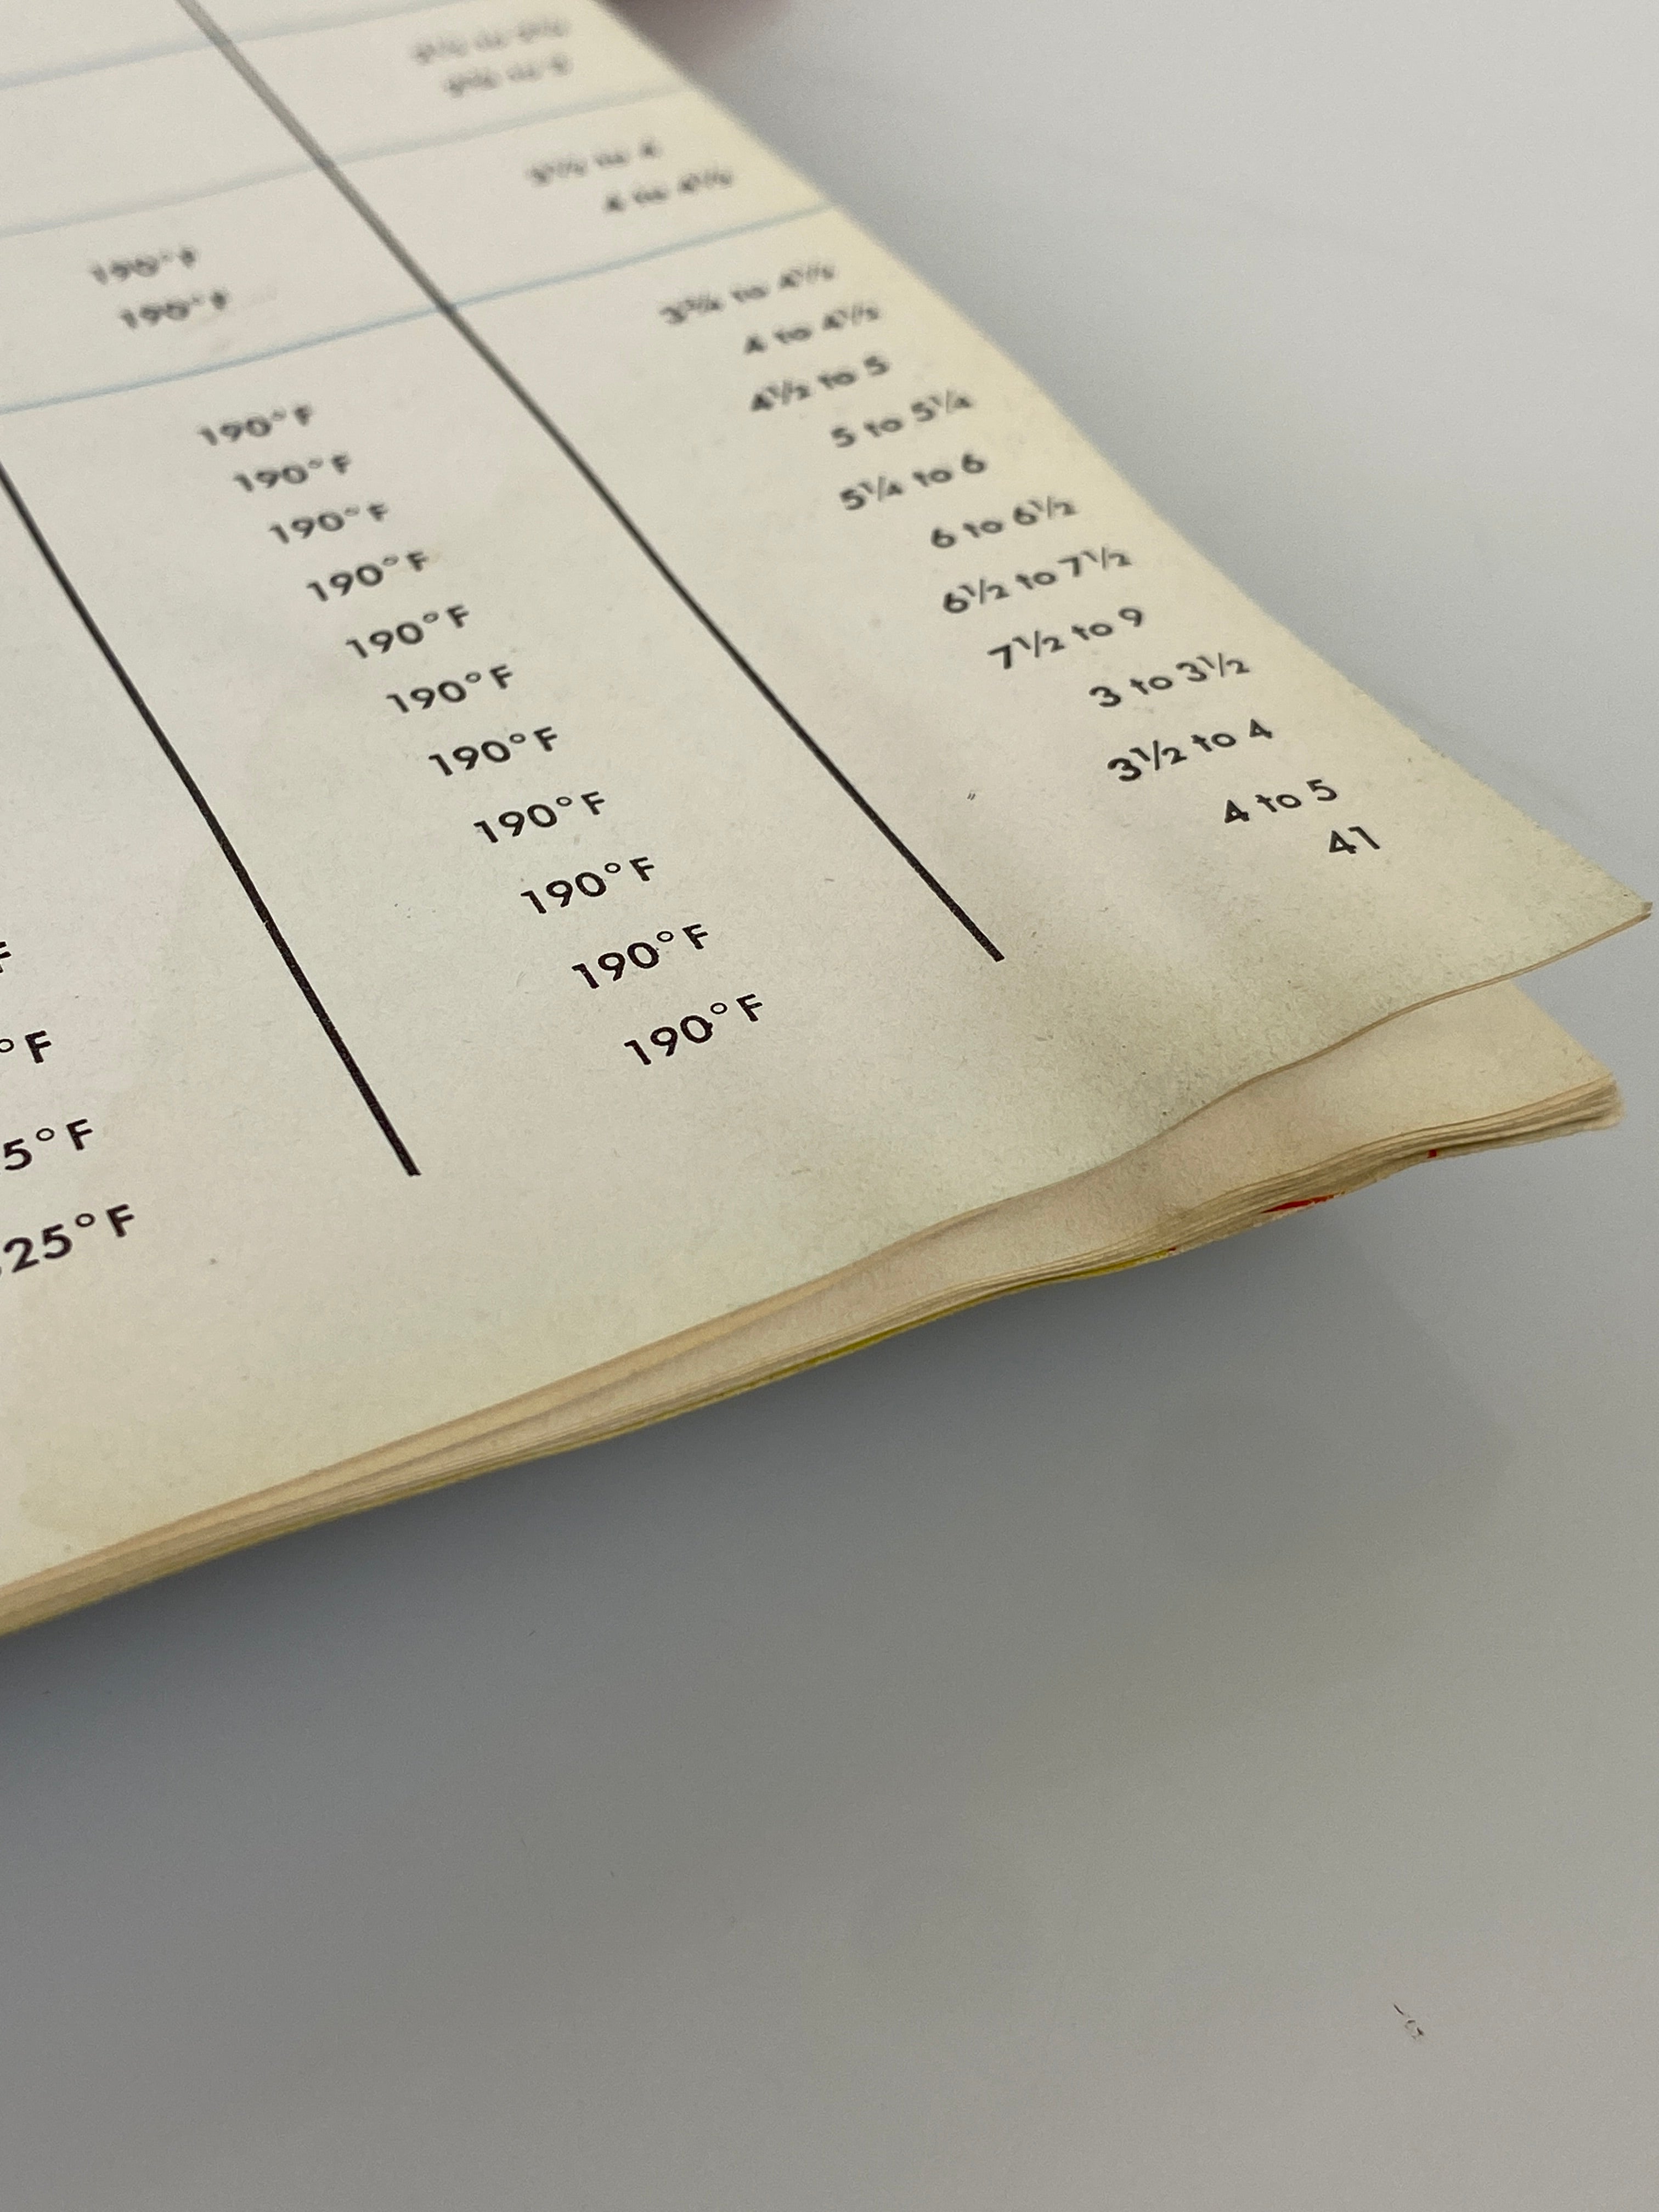 190°F 3½ to 4
190°F 4 to 4½
190°F 3¾ to 4½
190°F 4 to 4½
190°F 4½ to 5
190°F 5 to 5¼
190°F 5¼ to 6
190°F 6 to 6½
190°F 6½ to 7½
F 190°F 7½ to 9
°F 190°F 3 to 3½
5°F 190°F 3½ to 4
25°F 190°F 4 to 5
41